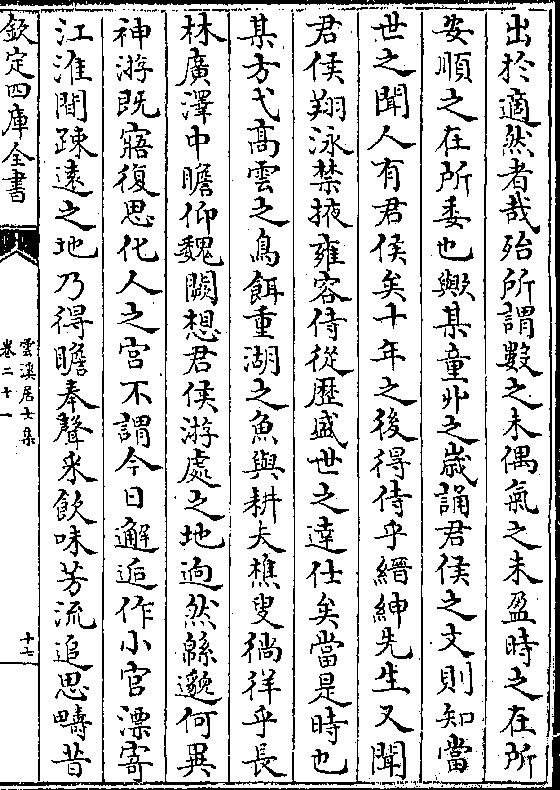 出於適然者哉殆所謂數之未偶氣之未盈時之在所
安順之在所委也歟某童丱之歳誦君侯之文則知當
世之聞人有君侯矣十年之後得侍乎縉紳先生又聞
君侯翔泳禁掖雍容侍從歴盛世之達仕矣當是時也
某方弋高雲之鳥餌重湖之魚與耕夫樵叟徜徉乎長
林廣澤中瞻仰魏闕想君侯游處之地逈然緜邈何異
神游既寤復思化人之宫不謂今日邂逅作小官漂寄
江淮間疎遠之地乃得瞻奉聲采飲味芳流追思疇昔
欽定四庫全書
雲溪居士集
卷二十一
十七